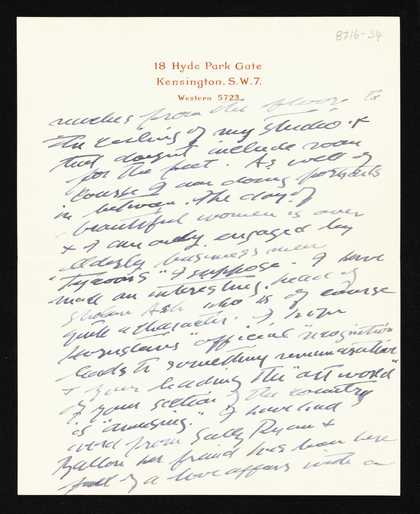 8716-34
18 Hyde Park Gate
Kensington. S.W.7.
Western 5723
reaches from the floor to
the ceiling of my studio &
that doesn't include room
for the feet. As well of
course I am doing portraits
in between. The day of
beautiful women is over
& I am only engaged by
elderly business men
"tycoons" I suppose. I have
made an interesting head of
Sholem Ash who is of course
quite a character. I hope
"official" recognition
leads to something remunerative
& your leading the "art world"
of your section of the country
is "amusing". I have had
word from Sally Ryan &
her friend has been here
full of a love affair with a